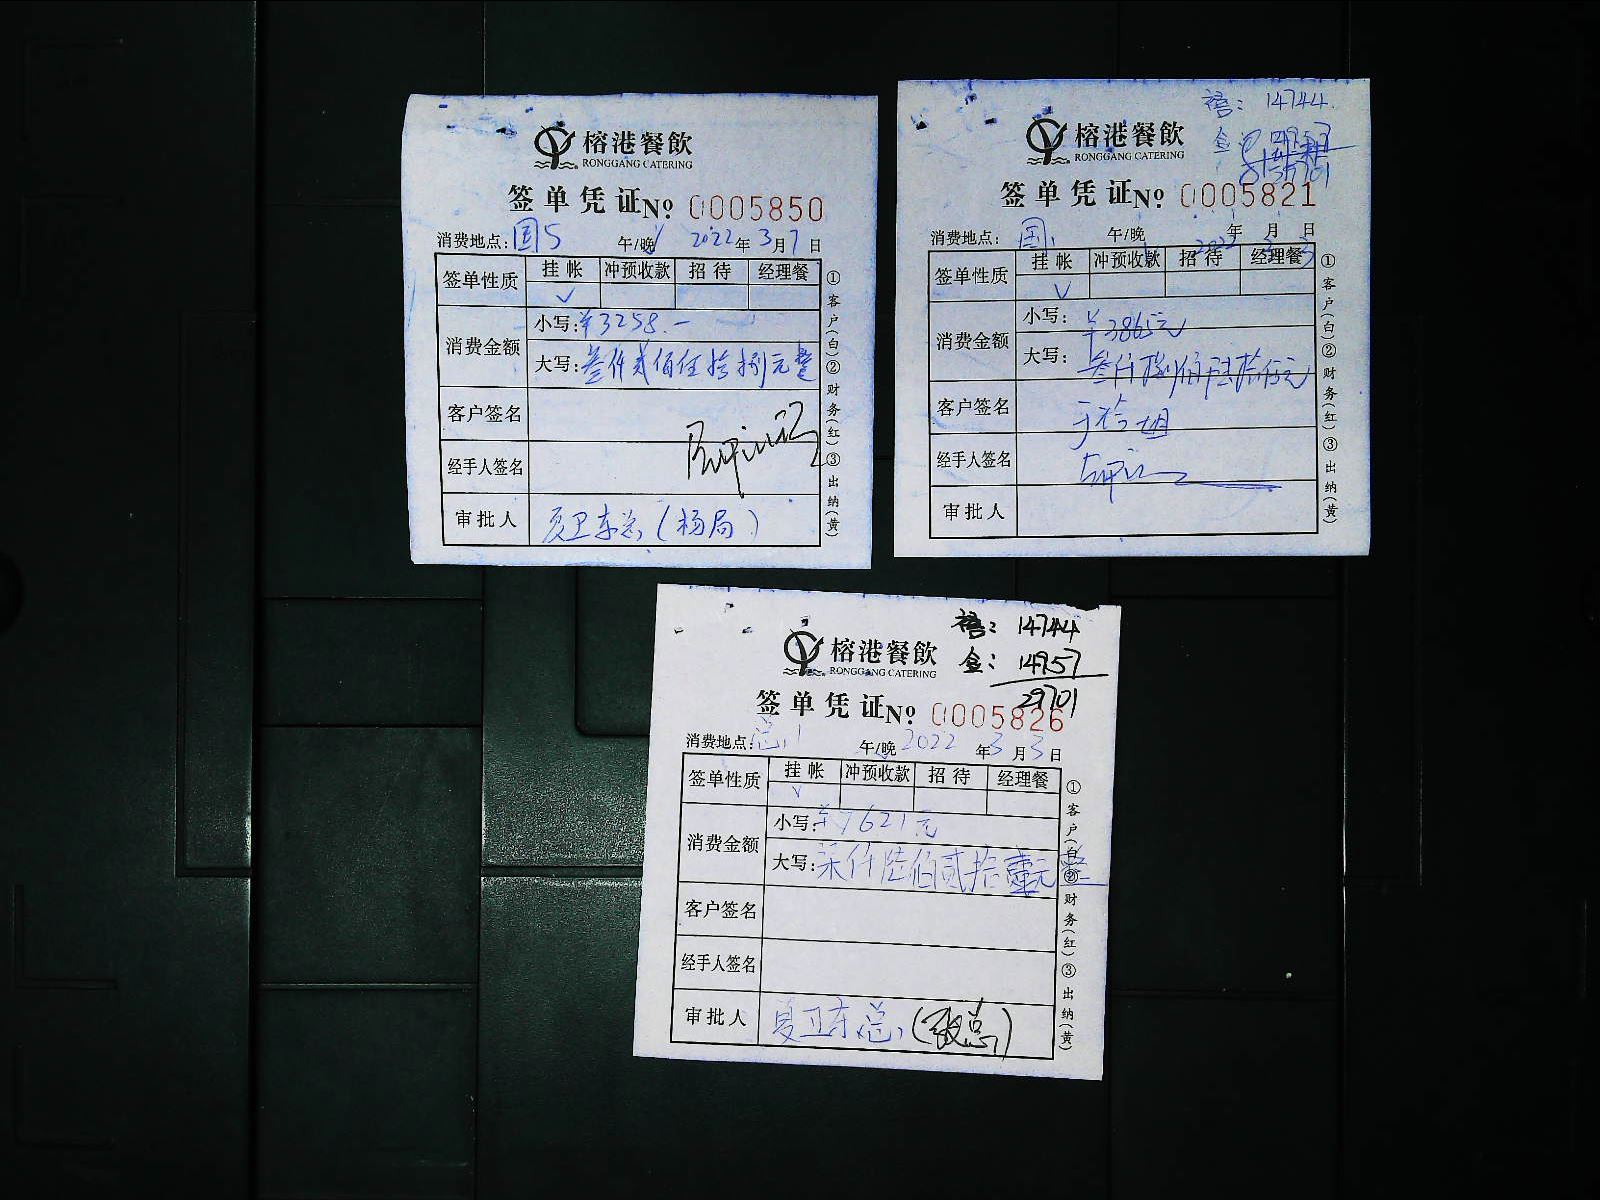 榕港餐飲
RONGGANG CATERING
签单凭证No 0005850
消费地点:国5 午/晚 2022年3月7日
签单性质 挂帐 冲预收款 招待 经理餐
✓
消费金额 小写:¥3258.—
大写:叁仟贰佰伍拾捌元整
客户签名
经手人签名
审批人 夏卫东总(杨局)
①客户(白)②财务(红)③出纳(黄)
禧:14744
榕港餐飲
RONGGANG CATERING
签单凭证No 0005821
消费地点:国1 午/晚 2022年3月3日
签单性质 挂帐 冲预收款 招待 经理餐
✓
消费金额 小写:¥3865元
大写:叁仟捌佰陆拾伍元
客户签名
经手人签名
审批人
①客户(白)②财务(红)③出纳(黄)
禧:14744
金:14957
29701
榕港餐飲
RONGGANG CATERING
签单凭证No 0005826
消费地点:总1 午/晚 2022年3月3日
签单性质 挂帐 冲预收款 招待 经理餐
✓
消费金额 小写:¥7621元
大写:柒仟陆佰贰拾壹元整
客户签名
经手人签名
审批人 夏卫东总(张总)
①客户(白)②财务(红)③出纳(黄)